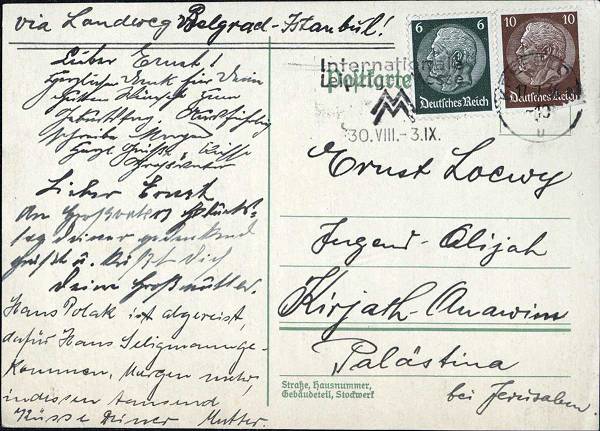 via Landweg Belgrad-Istanbul!
Lieber Ernst!
Herzlichen Dank für Dein
guten Wünsche zum
Geburtstag. Ausführlich
schreibe Morgen
Herzl Grüße Küsse
Grossvater
Lieber Ernst
An Großvaters Geburts-
tag deiner gedenkend
grüßt u. küßt Dich
Deine Großmutter.
Hans Polak ist abgereist,
dafür Hans Seligmann ge-
kommen, Morgen mehr,
indessen tausend
Küsse Deiner Mutter.
6 6
Deutsches Reich
10 10
Deutsches Reich
Internationale
Postkarte
30.VIII.-3.IX.
Ernst Loewy
Jugend-Alijah
Kirjath-Anawim
Palästina
bei Jerusalem.
Straße, Hausnummer,
Gebäudeteil, Stockwerk